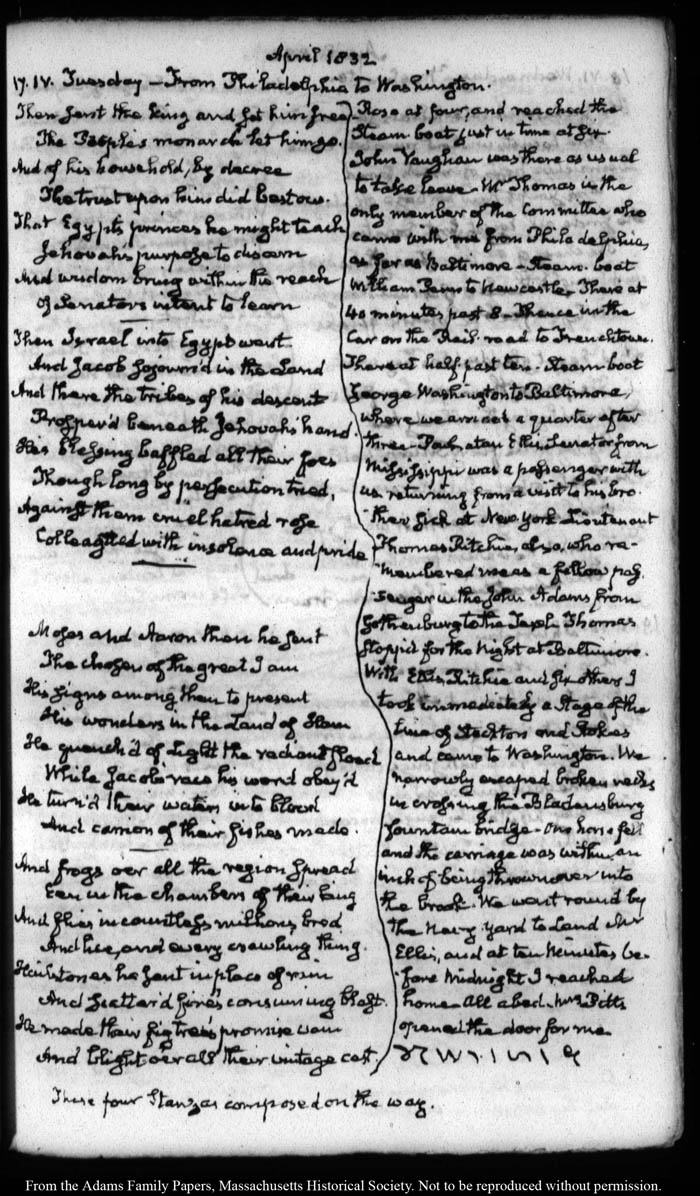 April 1832
17. IV. Tuesday — From Philadelphia to Washington.
Then sent the King and set him free
The People's monarch let him go.
And of his household, by decree
The trust upon him did bestow.
That Egypt's princes he might teach
Jehovah's purpose to discern
And wisdom bring within the reach
Of Senators intent to learn
Then Israel into Egypt went.
And Jacob sojourn'd in the Land
And there the tribes of his descent
Prosper'd beneath Jehovah's hand.
His blessing baffled all their foes
Though long by persecution tried,
Against them cruel hatred rose
Colleagued with insolence and pride
Moses and Aaron then he sent
The chosen of the great I am
His signs among them to present
His wonders in the Land of Ham
He quench'd of Light the radiant flood
While Jacob's race his word obey'd
He turn'd their waters into blood
And carrion of their fishes made.
And frogs o'er all the region spread
Even in the chambers of their King
And flies in countless millions bred
And lice, and every crawling thing.
Hailstones he sent in place of rain
And scatter'd fire's consuming blast.
He made their fig trees promise vain
And blight o'er all their vintage cast.
These four Stanzas composed on the way.
Rose at four, and reached the
Steam-boat just in time at six.
John Vaughan was there as usual
to take leave. Mr Thomas is the
only member of the Committee who
came with me from Philadelphia,
as far as Baltimore. Steam-boat
William Penn to Newcastle. There at
40 minutes past 8. Thence in the
Car on the Rail-road to Frenchtown.
There at half past ten. Steam boat
George Washington to Baltimore,
where we arrived a quarter after
three. Powhatan Ellis, Senator from
Mississippi was a passenger with
us, returning from a visit to his bro-
ther sick at New York. Lieutenant
Thomas Ritchie, also, who re-
membered me as a fellow pas-
senger in the John Adams from
Gothenburg to the Texel. Thomas
stopp'd for the Night at Baltimore.
With Ellis, Ritchie and six others I
took immediately a Stage of the
Line of Stockton and Stokes
and came to Washington. We
narrowly escaped broken necks
in crossing the Bladensburg
fountain bridge. One horse fell
and the carriage was within an
inch of being thrown over into
the brook. We went round by
the Navy-yard to Land Mr
Ellis, and at ten Minutes be-
fore Midnight I reached
home. All abed. Mrs Pitts
opened the door for me.